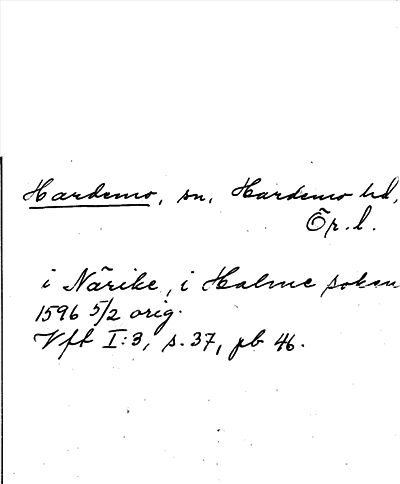 Hardemo, sn, Hardemo hd,
Ör. l.
i Närike, i Halme soken
1596 5/2 orig.
Vft I:3, s. 37, pb 46.